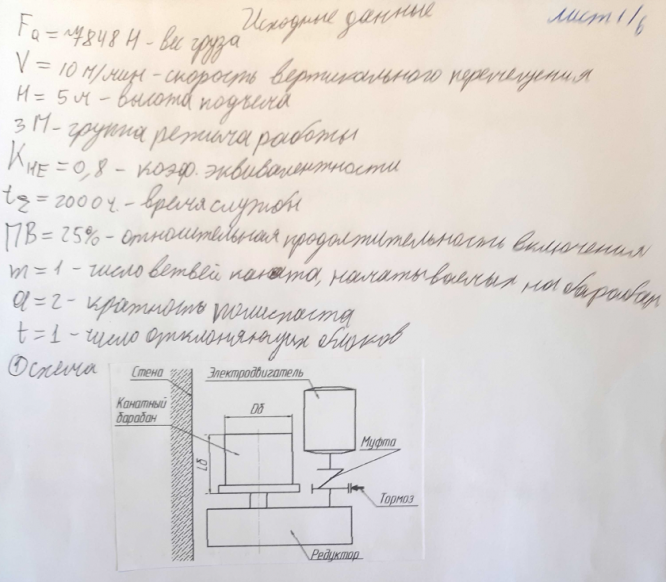 Исходные данные
лист 1/6
Fа = 7848 Н - вес груза
V = 10 м/мин - скорость вертикального перемещения
H = 5 м - высота подъема
3М - группа режима работы
KНЕ = 0,8 - коэф. эквивалентности
tΣ = 2000 ч. - время службы
ПВ = 25% - относительная продолжительность включения
m = 1 - число ветвей каната, наматываемых на барабан
a = 2 - кратность полиспаста
t = 1 - число отклоняющих блоков
① Схема
Стена
Электродвигатель
Канатный
барабан
Dб
Lб
Муфта
Тормоз
Редуктор